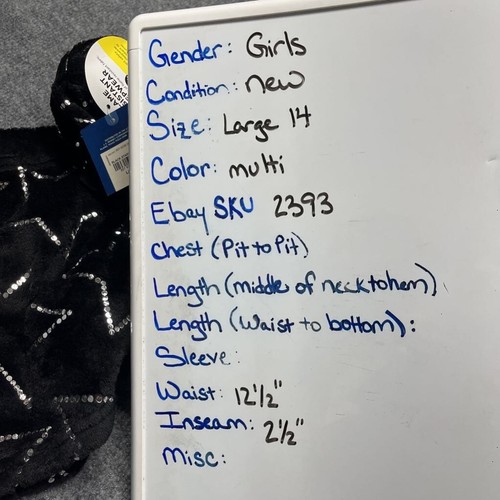 AME
ISTANT
EPWEAR
Gender: Girls
Condition: new
Size: Large 14
Color: multi
Ebay SKU 2393
Chest (Pit to Pit)
Length (middle of neck to hem)
Length (Waist to bottom):
Sleeve:
Waist: 12 1/2"
Inseam: 2 1/2"
Misc: